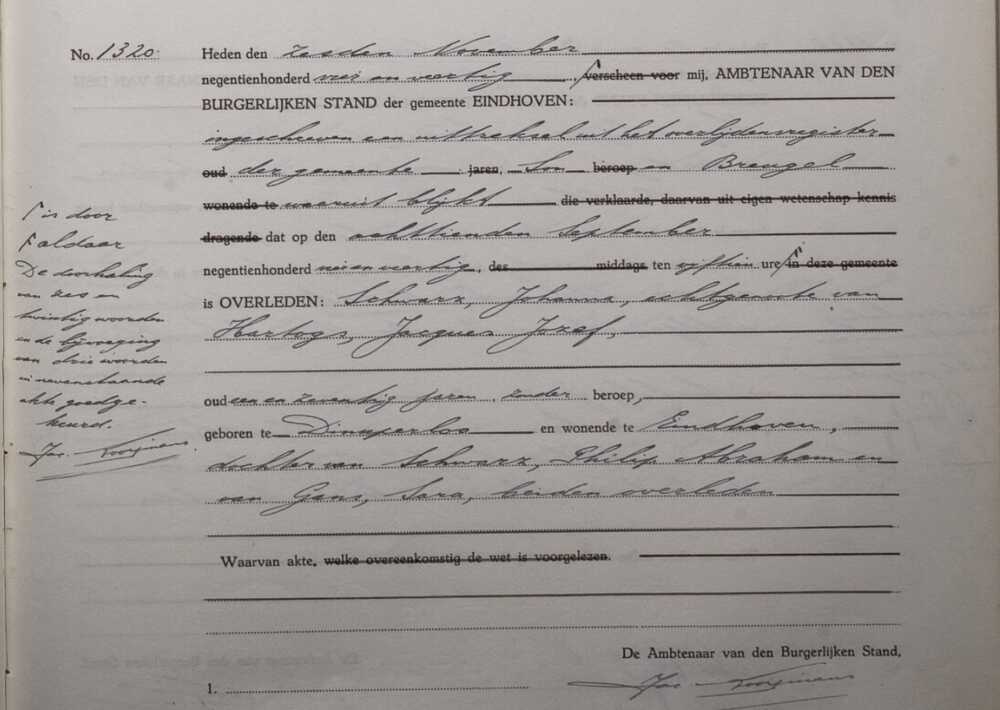 No. 1320. Heden den zesden November
negentienhonderd vier en veertig, ſ verscheen voor mij, AMBTENAAR VAN DEN
BURGERLIJKEN STAND der gemeente EINDHOVEN:
ingeschreven een uittreksel uit het overlijdensregister
oud der gemeente jaren, Son beroep en Breugel
wonende te waaruit blijkt die verklaarde, daarvan uit eigen wetenschap kennis
dragende dat op den achttienden September
negentienhonderd vier en veertig, des middags ten vijftien ure ſ in deze gemeente
is OVERLEDEN: Schwarz, Johanna, echtgenoote van
Hartogs, Jacques Jozef,
oud een en zeventig jaren, zonder beroep,
geboren te Dinxperloo en wonende te Eindhoven,
dochter van Schwarz, Philip Abraham en
van Gans, Sara, beiden overleden
Waarvan akte, welke overeenkomstig de wet is voorgelezen.
De Ambtenaar van den Burgerlijken Stand,
1.
Jos Kooymans
ſ is door
ſ aldaar
De doorhaling
van zes en
twintig woorden
en de bijvoeging
van drie woorden
in nevenstaande
akte goedge-
keurd.
Jos Kooymans